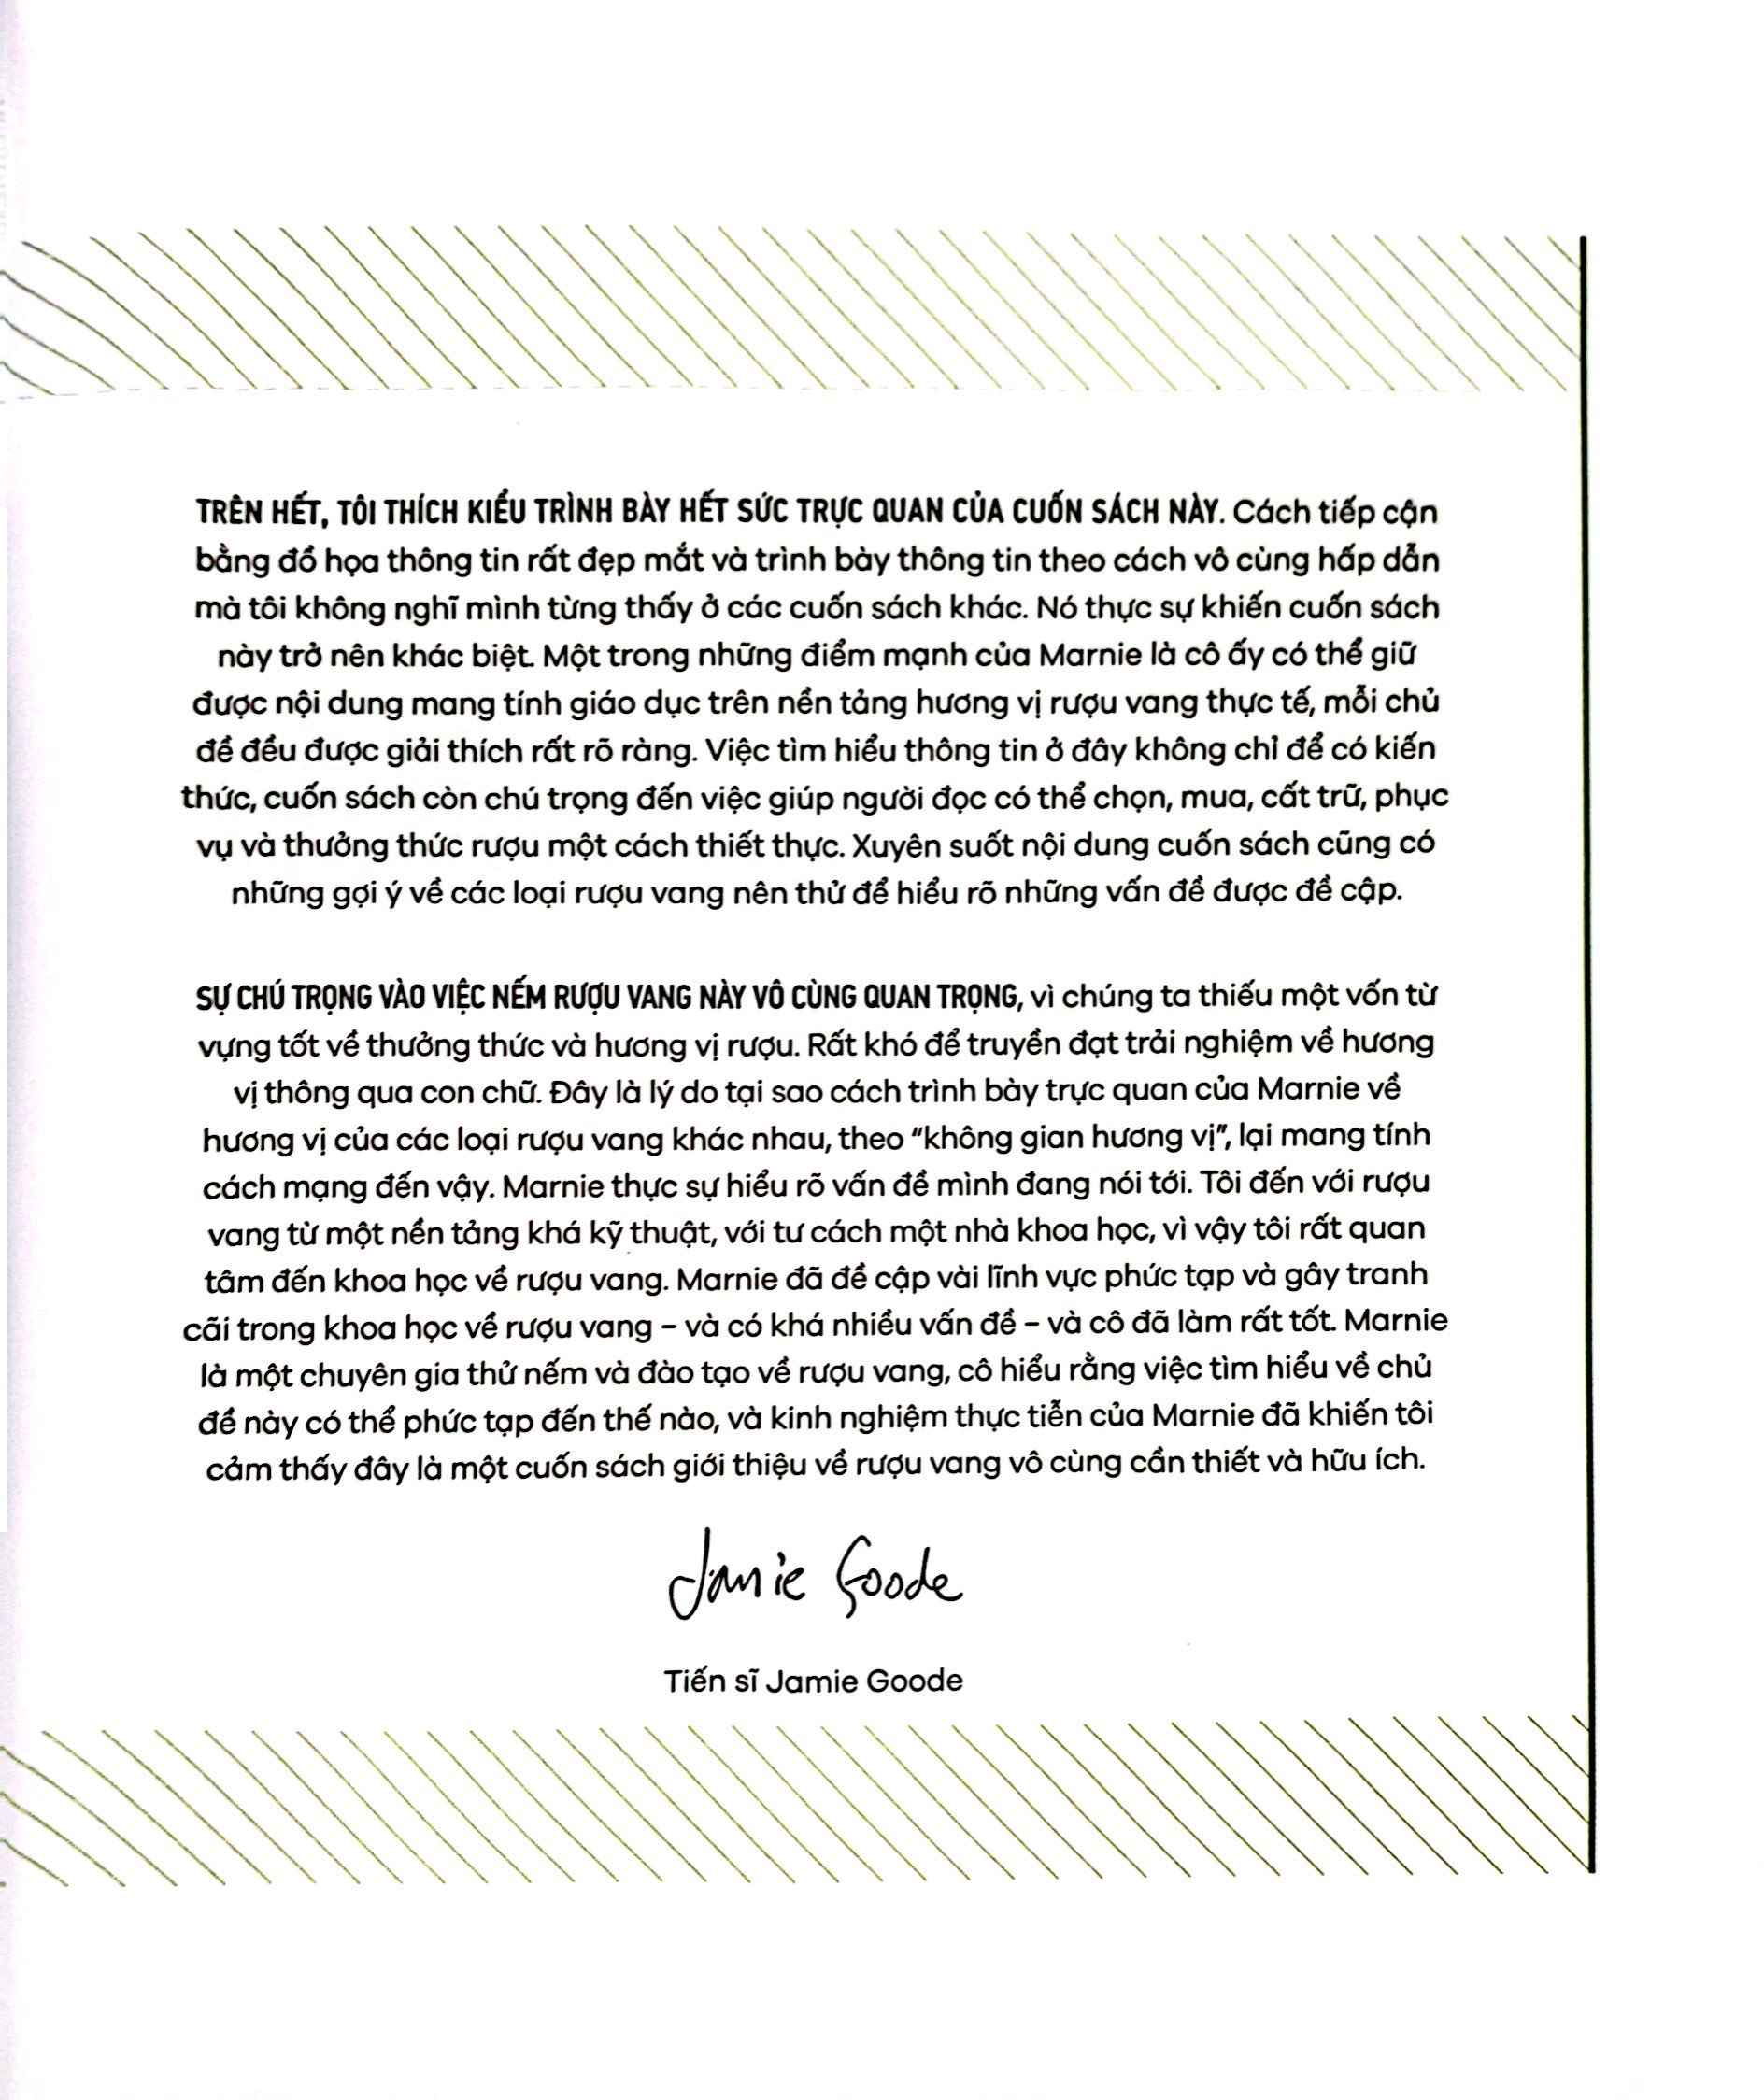 TRÊN HẾT, TÔI THÍCH KIỂU TRÌNH BÀY HẾT SỨC TRỰC QUAN CỦA CUỐN SÁCH NÀY. Cách tiếp cận
bằng đồ họa thông tin rất đẹp mắt và trình bày thông tin theo cách vô cùng hấp dẫn
mà tôi không nghĩ mình từng thấy ở các cuốn sách khác. Nó thực sự khiến cuốn sách
này trở nên khác biệt. Một trong những điểm mạnh của Marnie là cô ấy có thể giữ
được nội dung mang tính giáo dục trên nền tảng hương vị rượu vang thực tế, mỗi chủ
đề đều được giải thích rất rõ ràng. Việc tìm hiểu thông tin ở đây không chỉ để có kiến
thức, cuốn sách còn chú trọng đến việc giúp người đọc có thể chọn, mua, cất trữ, phục
vụ và thưởng thức rượu một cách thiết thực. Xuyên suốt nội dung cuốn sách cũng có
những gợi ý về các loại rượu vang nên thử để hiểu rõ những vấn đề được đề cập.
SỰ CHÚ TRỌNG VÀO VIỆC NẾM RƯỢU VANG NÀY VÔ CÙNG QUAN TRỌNG, vì chúng ta thiếu một vốn từ
vựng tốt về thưởng thức và hương vị rượu. Rất khó để truyền đạt trải nghiệm về hương
vị thông qua con chữ. Đây là lý do tại sao cách trình bày trực quan của Marnie về
hương vị của các loại rượu vang khác nhau, theo “không gian hương vị”, lại mang tính
cách mạng đến vậy. Marnie thực sự hiểu rõ vấn đề mình đang nói tới. Tôi đến với rượu
vang từ một nền tảng khá kỹ thuật, với tư cách một nhà khoa học, vì vậy tôi rất quan
tâm đến khoa học về rượu vang. Marnie đã đề cập vài lĩnh vực phức tạp và gây tranh
cãi trong khoa học về rượu vang – và có khá nhiều vấn đề – và cô đã làm rất tốt. Marnie
là một chuyên gia thử nếm và đào tạo về rượu vang, cô hiểu rằng việc tìm hiểu về chủ
đề này có thể phức tạp đến thế nào, và kinh nghiệm thực tiễn của Marnie đã khiến tôi
cảm thấy đây là một cuốn sách giới thiệu về rượu vang vô cùng cần thiết và hữu ích.
Jamie Goode
Tiến sĩ Jamie Goode